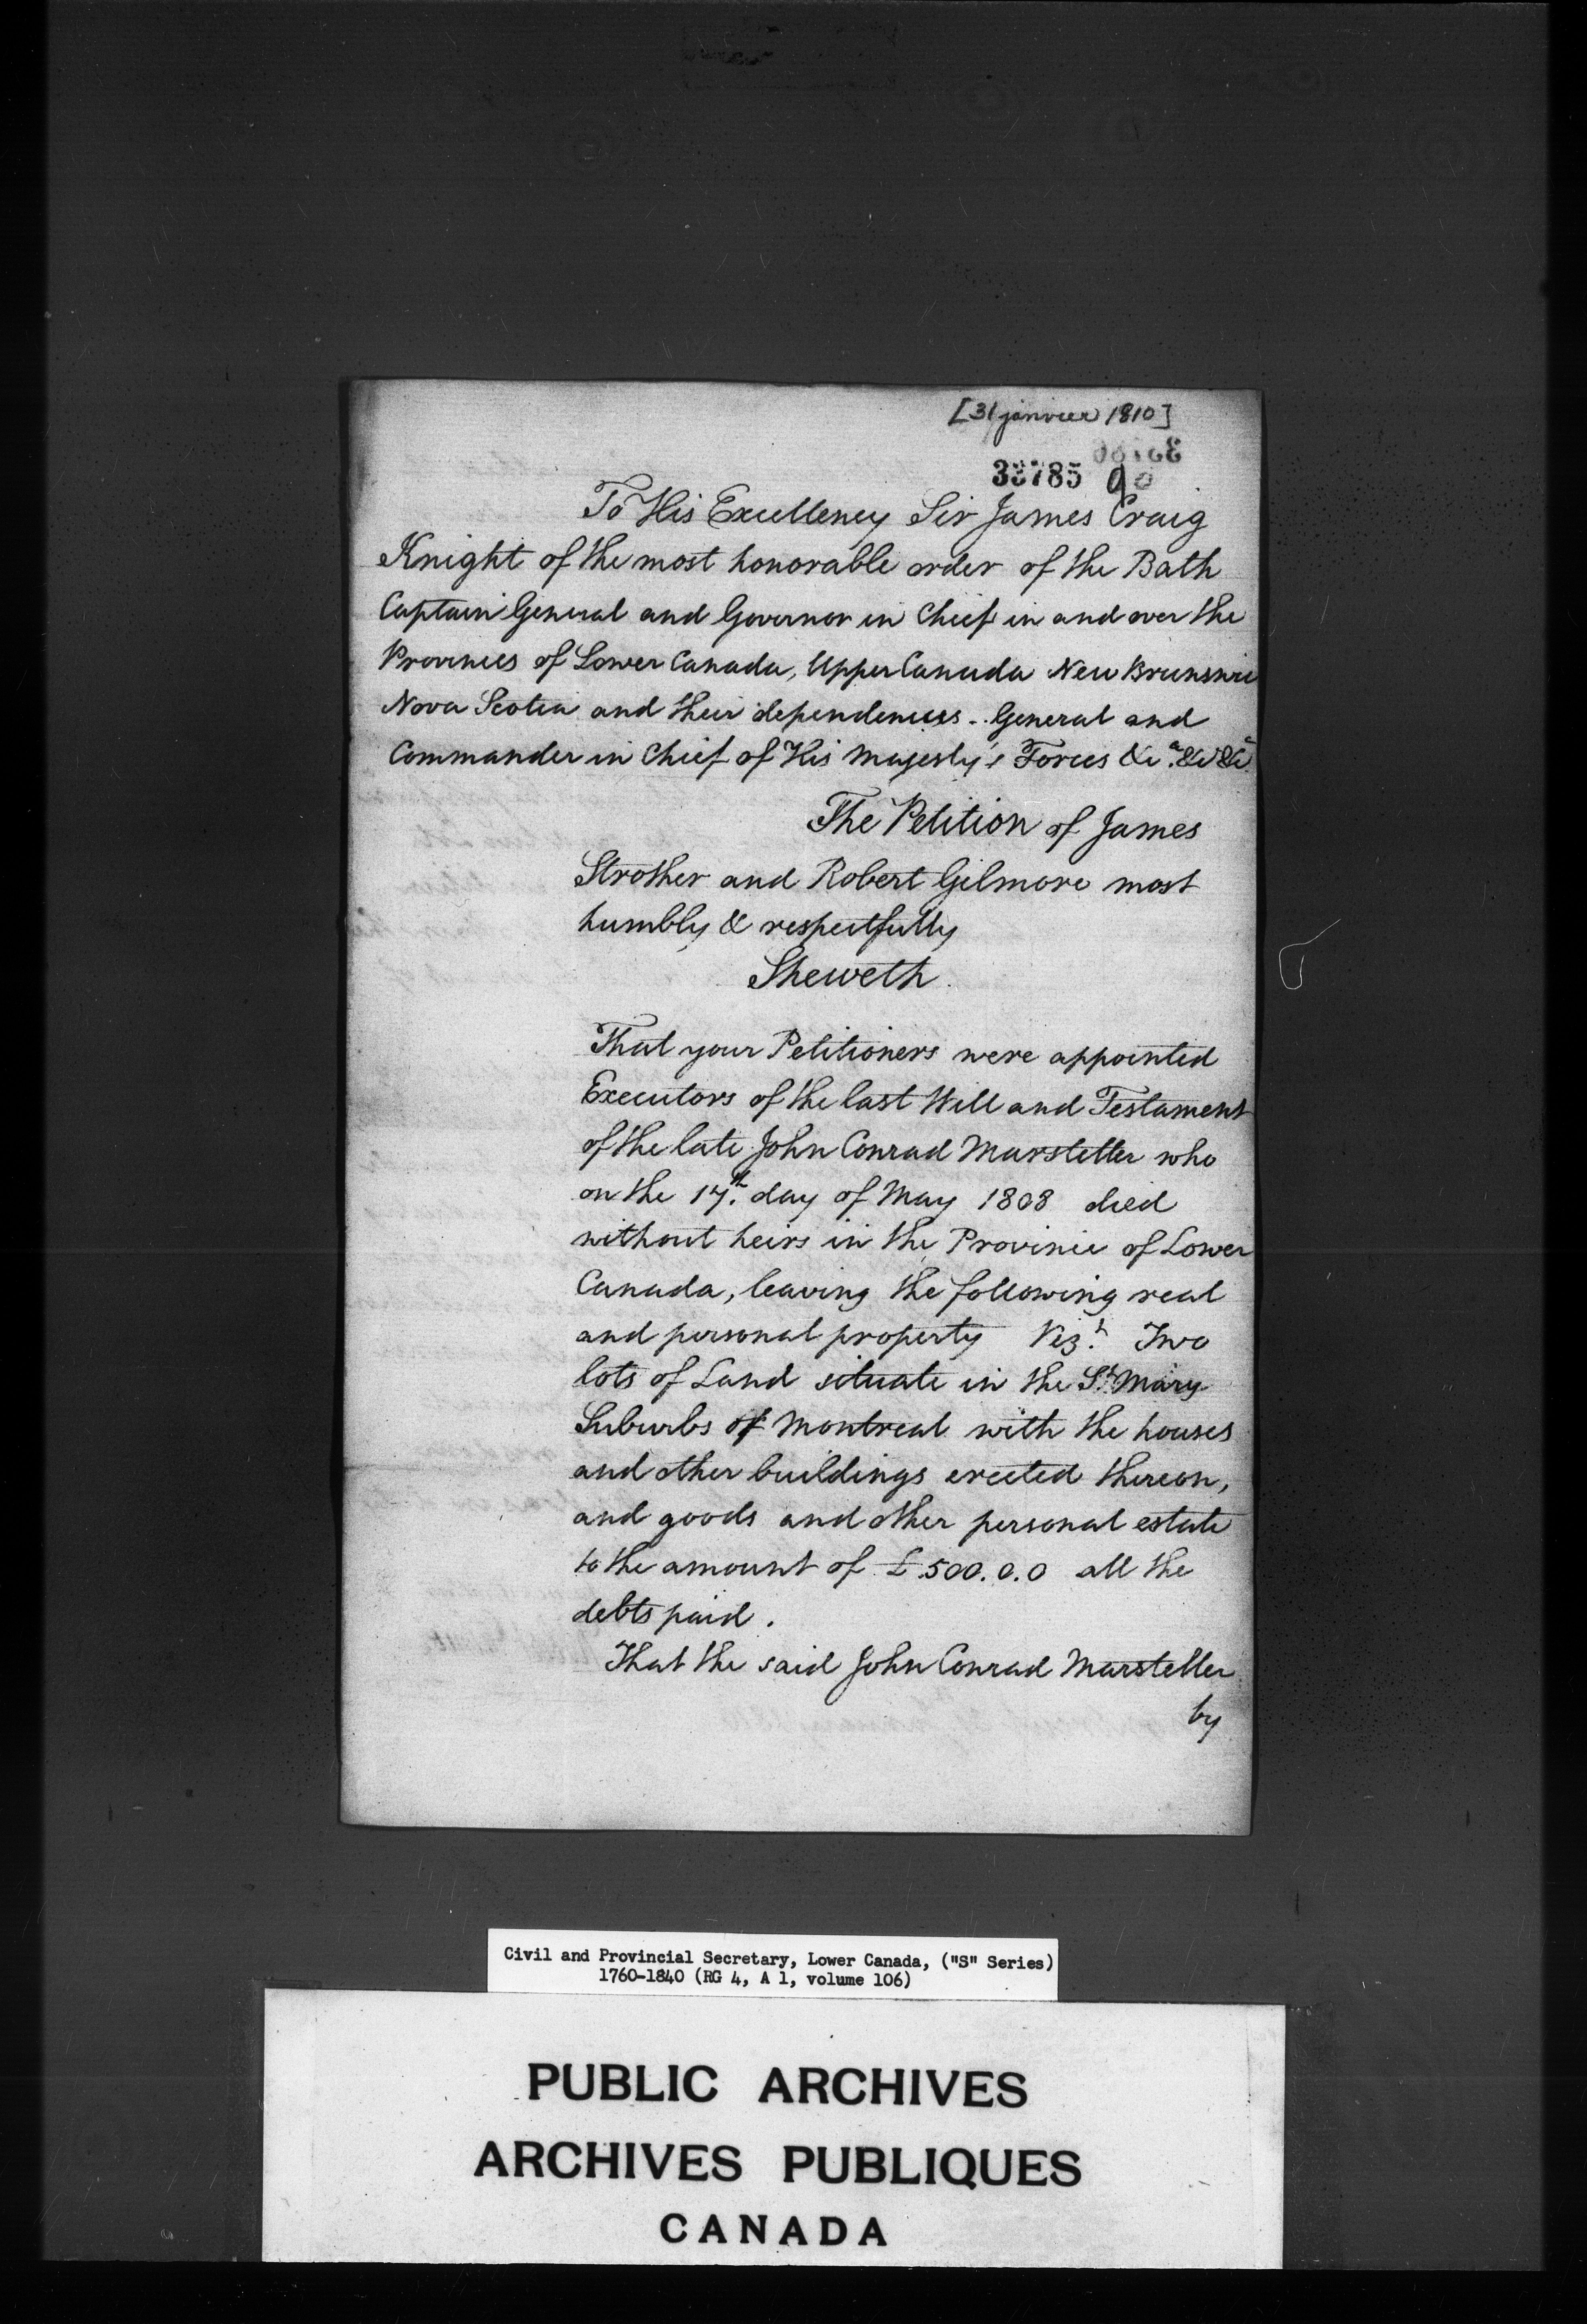 [31 janvier 1810]
33785
To His Excellency Sir James Craig
Knight of the most honorable order of the Bath
Captain General and Governor in Chief in and over the
Provinces of Lower Canada, Upper Canada New Brunswic
Nova Scotia and their dependencies - General and
Commander in Chief of His Majesty's Forces &ca. &c &ca.
The Petition of James
Strother and Robert Gilmore most
humbly & respectfully
Sheweth
That your Petitioners were appointed
Executors of the last Will and Testament
of the late John Conrad Marsteller who
on the 17th. day of May 1808 died
without heirs in the Province of Lower
Canada, leaving the following real
and personal property Vizt. Two
lots of Land situate in the St. Mary
Suburbs of Montreal with the houses
and other buildings erected thereon,
and goods and other personal estate
to the amount of £500.0.0 all the
debts paid.
That the said John Conrad Marsteller
by
Civil and Provincial Secretary, Lower Canada, ("S" Series)
1760-1840 (RG 4, A 1, volume 106)
PUBLIC ARCHIVES
ARCHIVES PUBLIQUES
CANADA